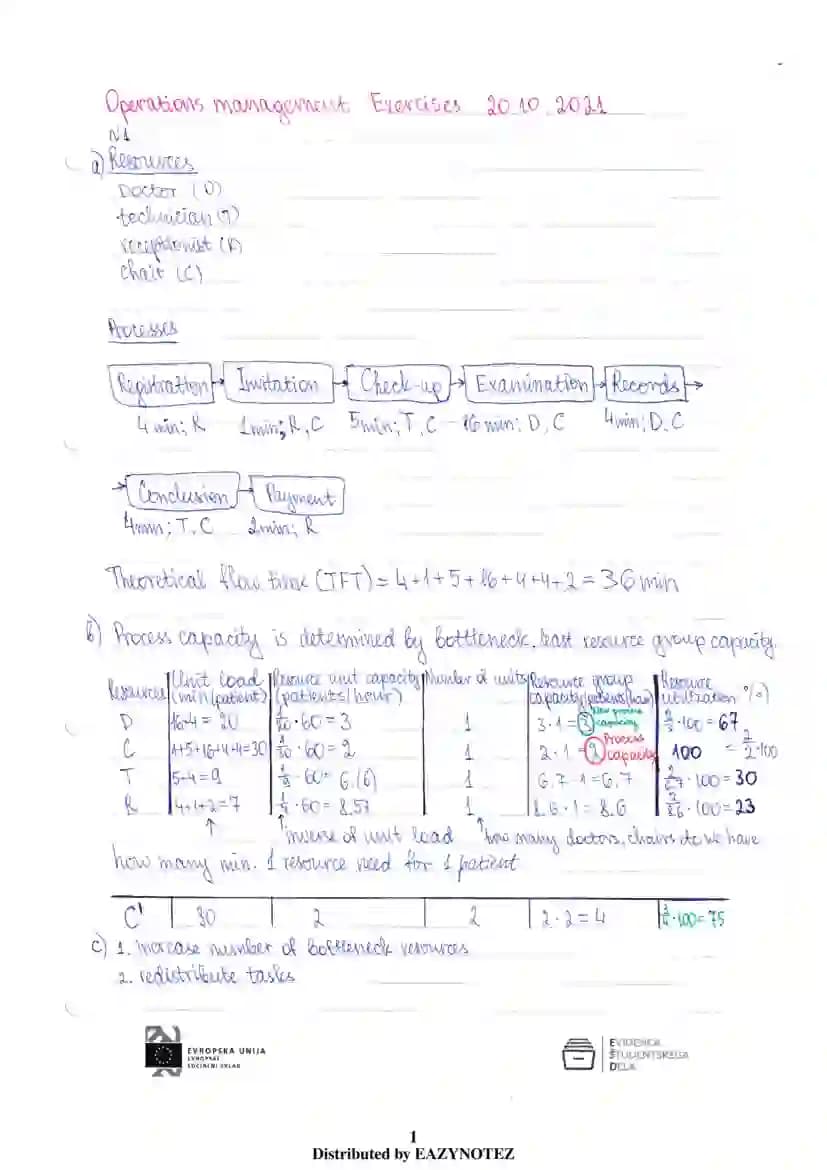 Operations management Exercises 20.10.2021
N1
a) Resources
Doctor (D)
technician (T)
receptionist (R)
chair (C)
Processes
Registration Invitation Check-up Examination Records
4 min; R 1min; R, C 5min; T, C 16 min; D, C 4min; D, C
Conclusion Payment
4min; T, C 2min; R
Theoretical flow time (TFT) = 4+1+5+16+4+4+2 = 36 min
b) Process capacity is determined by bottleneck, least resource group capacity.
Resources Unit load (min/patient) Resource unit capacity (patients/hour) Number of units Resource group capacity (patients/hour) Resource utilization (%)
D 16+4 = 20 1/20 · 60 = 3 1 3 · 1 = 3 New process capacity 2/3 · 100 = 67
C 1+5+16+4+4=30 1/30 · 60 = 2 1 2 · 1 = 2 Process capacity 100 = 2/2 · 100
T 5+4 = 9 1/9 · 60 = 6.(6) 1 6.7 · 1 = 6.7 2/6.7 · 100 = 30
R 4+1+2 = 7 1/7 · 60 = 8.57 1 8.6 · 1 = 8.6 2/8.6 · 100 = 23
↑ ↑ inverse of unit load ↑ how many doctors, chairs etc we have
how many min. 1 resource need for 1 patient
C' 30 2 2 2 · 2 = 4 3/4 · 100 = 75
c) 1. increase number of bottleneck resources
2. redistribute tasks
EVROPSKA UNIJA
EVROPSKI
SOCIALNI SKLAD
EVIDENCA
ŠTUDENTSKEGA
DELA
1
Distributed by EAZYNOTEZ